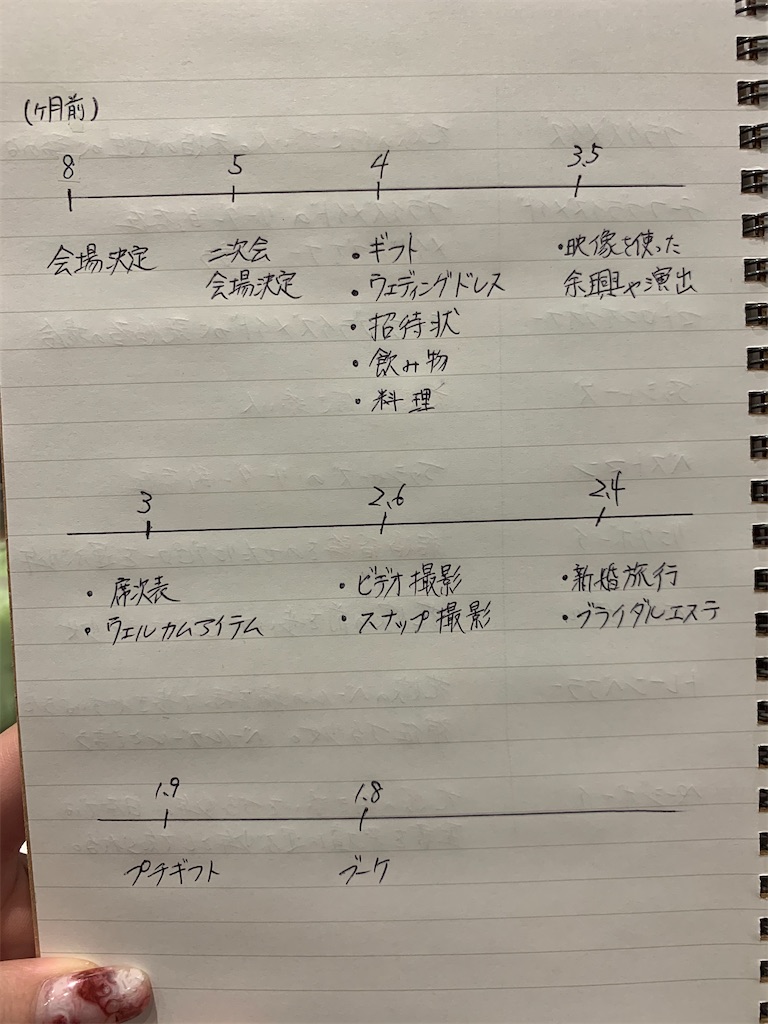 (ヶ月前)
8 5 4 3.5
会場決定
二次会
会場決定
・ギフト
・ウェディングドレス
・招待状
・飲み物
・料理
・映像を使った
余興や演出
3 2.6 2.4
・席次表
・ウェルカムアイテム
・ビデオ撮影
・スナップ撮影
・新婚旅行
・ブライダルエステ
1.9 1.8
プチギフト
ブーケ